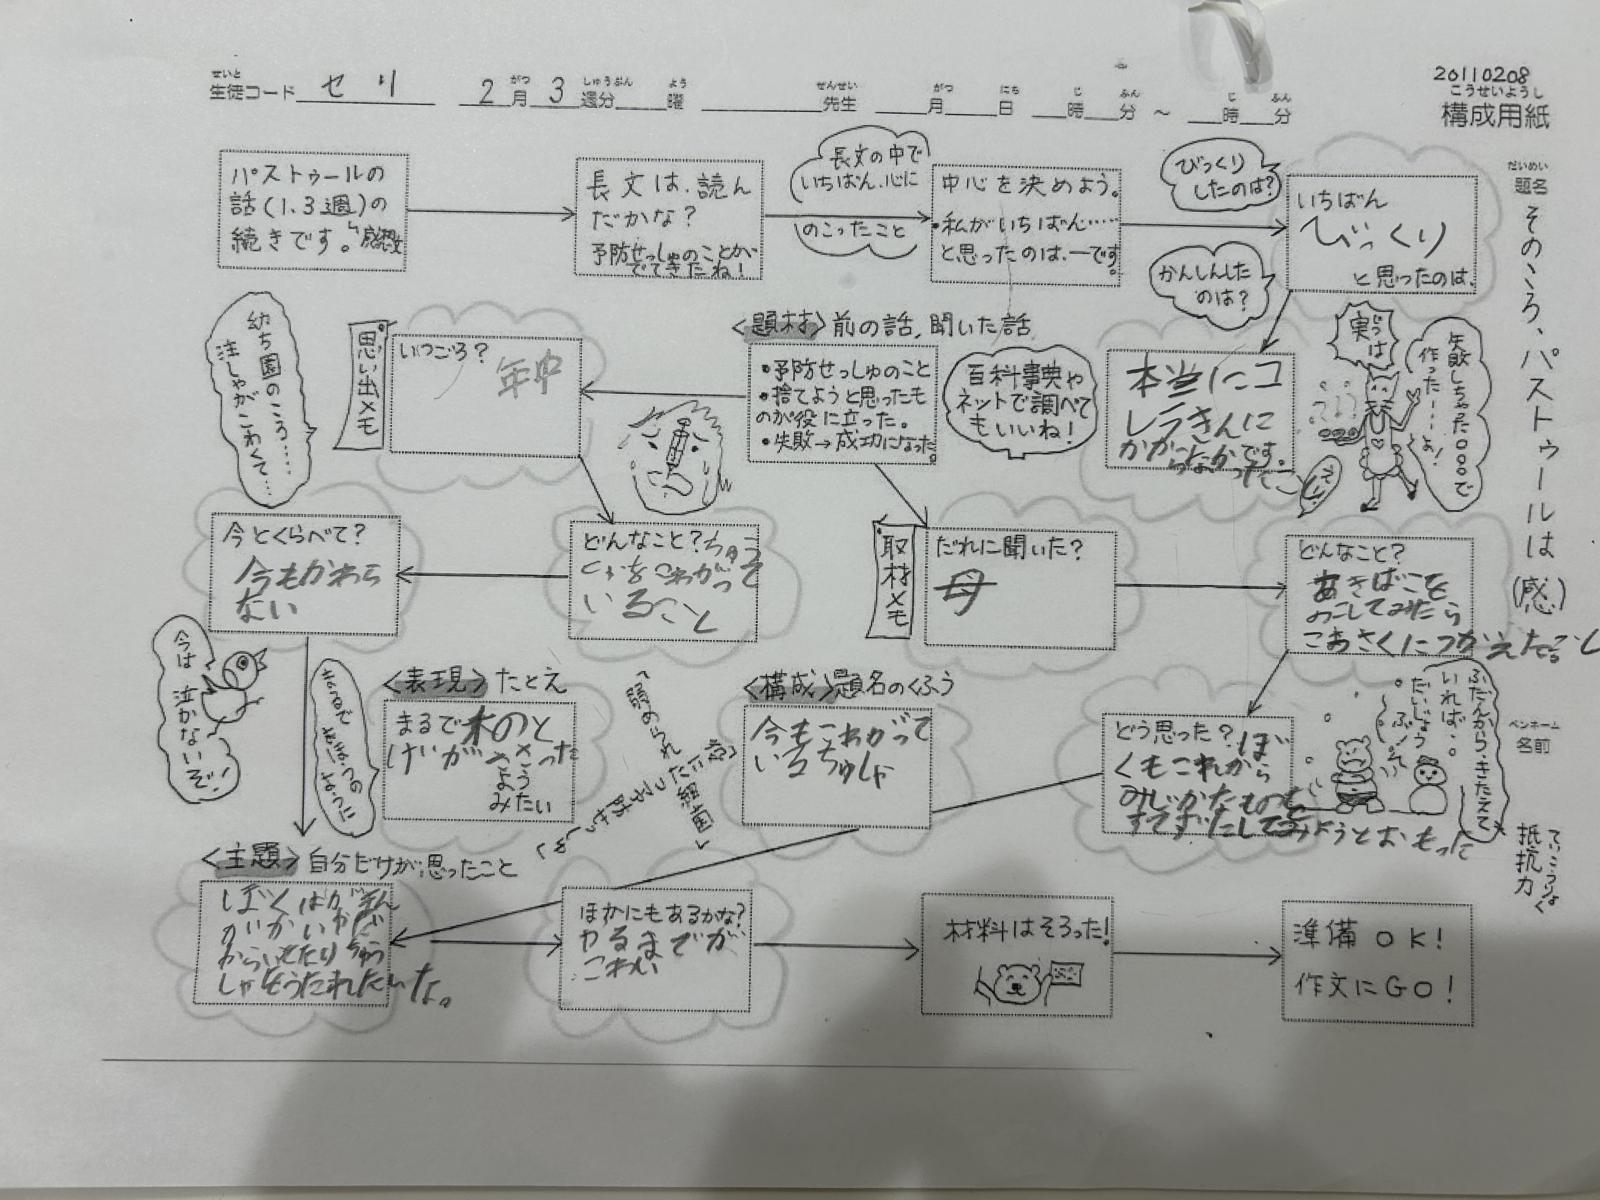 20110208
せいと
生徒コード セリ 2月3週分 曜 先生 月 日 時 分 ～ 時 分
がつ しゅうぶん よう せんせい がつ にち じ ふん じ ふん
こうせいようし
構成用紙
だいめい
題名
そのころ、パストゥールは(感)
ペンネーム
名前
パストゥールの
話(1.3週)の
続きです。
長文は、読ん
だかな?
予防せっしゅのことが
でてきたね!
長文の中で
いちばん、心に
のこったこと
中心を決めよう。
・私がいちばん……
と思ったのは、ーです。
びっくり
したのは?
かんしんした
のは?
いちばん
びっくり
と思ったのは、
本当にコ
レラきんに
かからなかった
です。
じつは
実は
失敗しちゃった。。。で
作った
<題材>前の話、聞いた話
・予防せっしゅのこと
・捨てようと思ったも
のが役に立った。
・失敗→成功になった。
百科事典や
ネットで調べて
もいいね!
思い出メモ
いつごろ?
年中
幼ち園のころ……
注しゃがこわくて…
どんなこと?ちゅう
しゃをこわがって
いること
今とくらべて?
今もかわら
ない
今は
泣かないぞ!
取材メモ
だれに聞いた?
母
どんなこと?
あきばこを
のこしてみたら
こおさくにつかえた
どう思った?ぼ
くもこれから
みじかたものを
すてずにだしてみようとおもった
ふだんから、きたえて
いれば…
だいじょう
ぶ!
てい こう りょく
抵抗力
<表現>たとえ
まるで木のと
げがささった
ような
みたい
<構成>題名のくふう
今もこわがって
いるちゅしゃ
<主題>自分だけが思ったこと
ほかにもあるかな?
やるまでが
こわい
材料はそろった!
準備OK!
作文にGO!